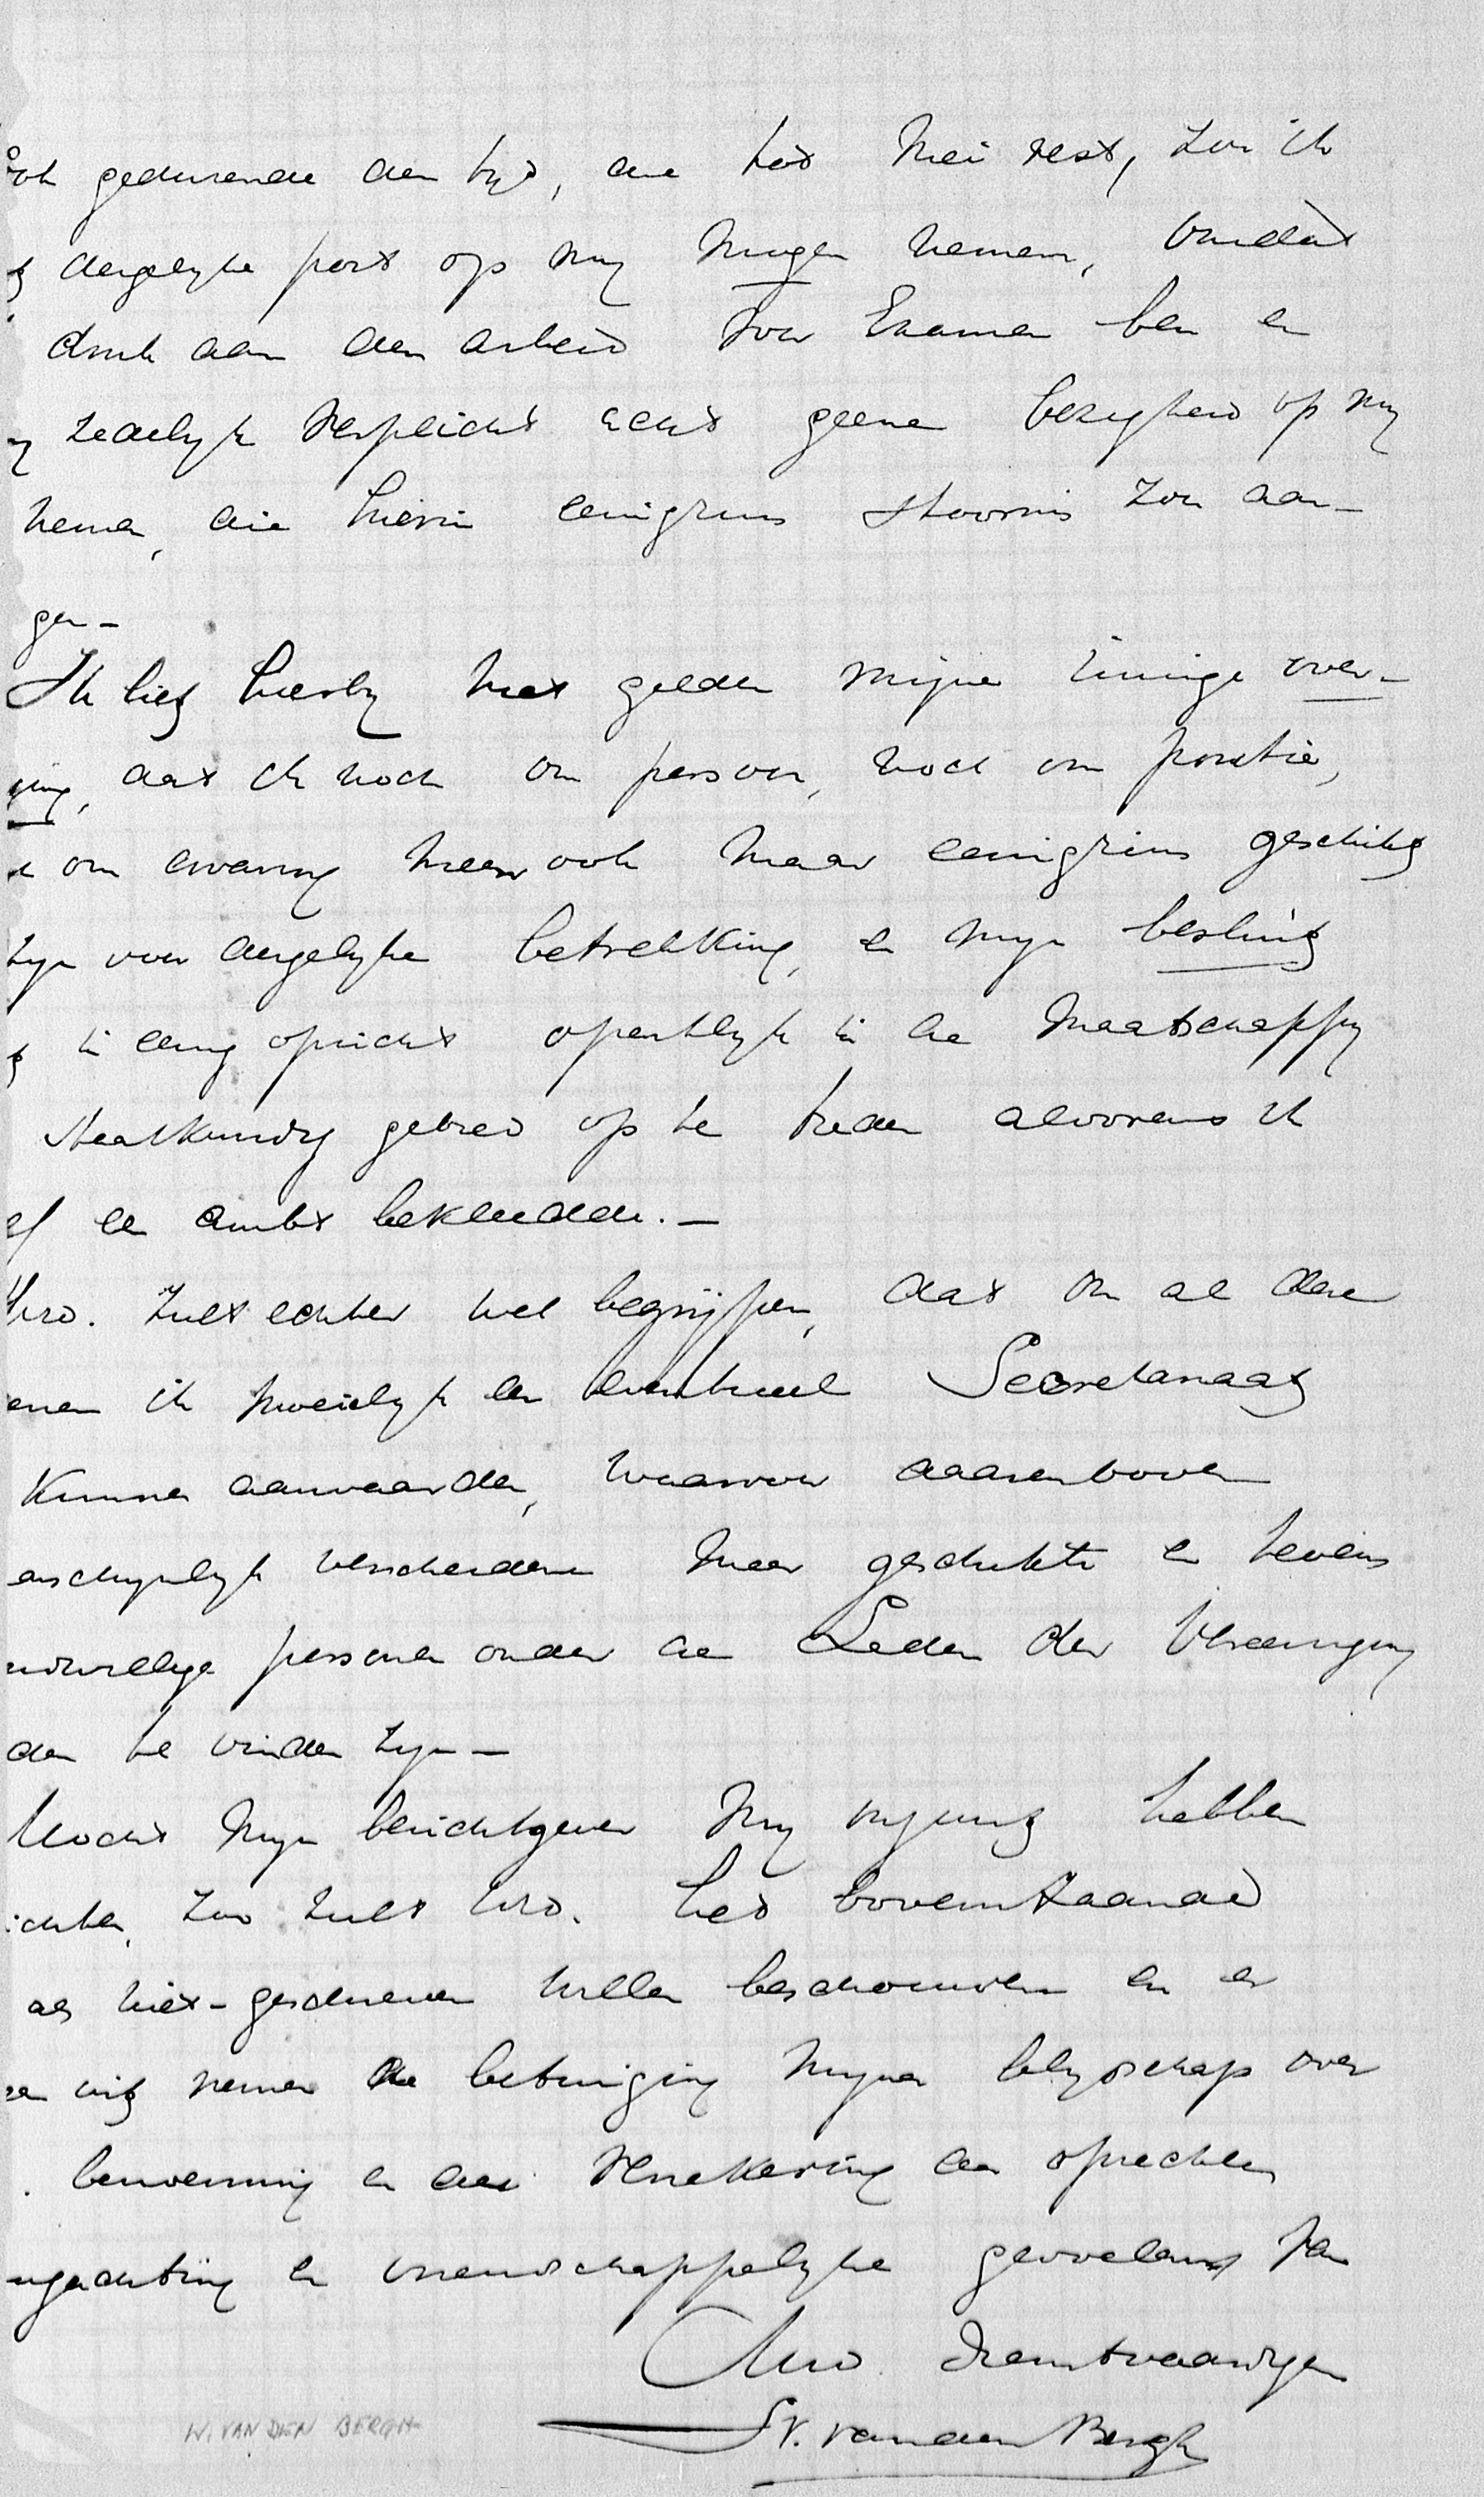 ook gedurende den tyd, die tot Mei rest, zou ik
dergelyke post op my mogen nemen, omdat
druk aan den arbeid voor Examen ben en
zedelyk verplicht acht geene bezigheid op my
nemen, die hierin eenigzins stoornis zou aan-
gen -
Ik liet hierby niet gelden mijne innige over-
ging, dat ik noch om persoon, noch om positie,
om ervaring meer ook maar eenigzins geschikt
zyn voor dergelyke betrekking, en myn besluit
in eenig opzicht opentlyk in de Maatschappy
Staatkundig gebied op te treden alvorens ik
een ambt bekleedde. -
UEd. zult echter wel begrijpen, dat om al deze
enen ik moeielyk een eventueel Secretariaat
kunnen aanvaarden, waarvoor daarenboven
aarschynlyk verscheidene meer geschikte en tevens
willige personen onder de Leden der Vereeniging
den te vinden zyn -
Mocht myn berichtgever my onjuist hebben
ichten, zoo zult UEd. het bovenstaande
als niet-geschreven willen beschouwen en er
en uit nemen de betuiging myner blydschap over
benoeming en der verzekering der oprechten
ogachting en vriendschappelyke gevoelens van
UEd. Dienstvaardigen
W. van den Bergh
W. VAN DEN BERGH